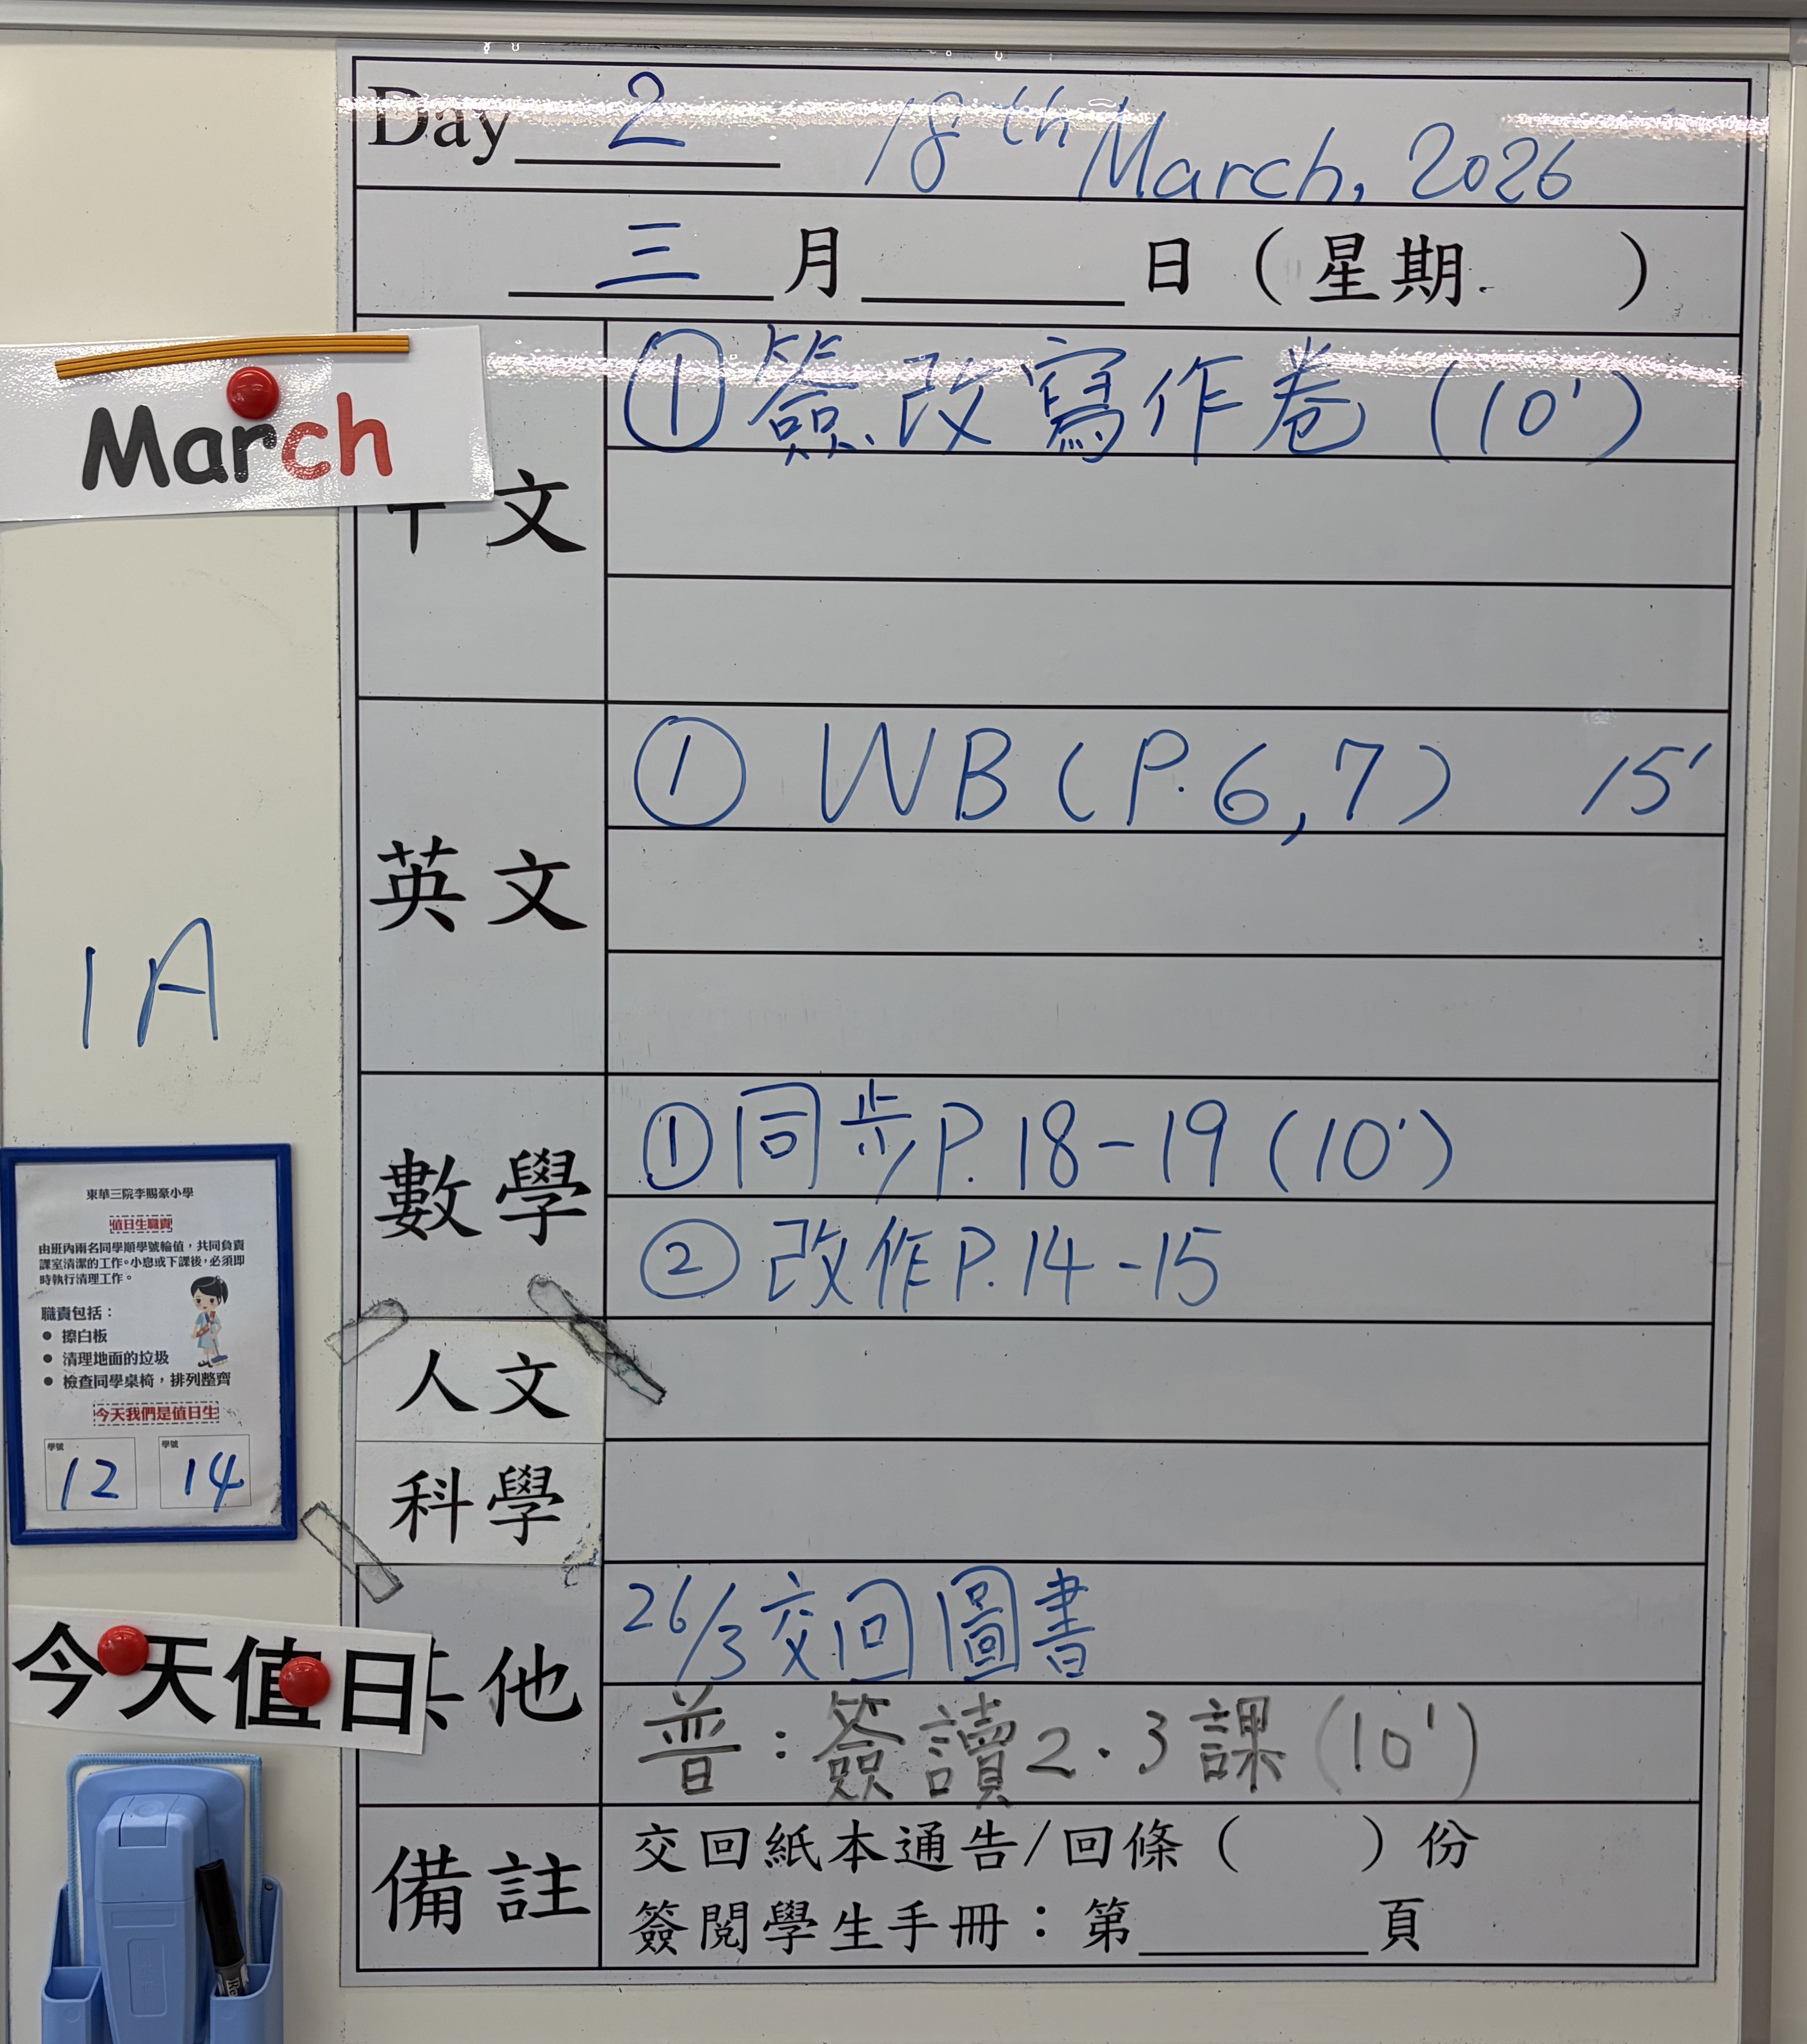 Day 2 18th March, 2026
三 月 日 ( 星期. )
March
文
① 簽改寫作卷 (10')
英文
① WB (P.6,7) 15'
1A
數學
① 同步P.18-19 (10')
② 改作P.14-15
人文
科學
東華三院李賜豪小學
值日生職責
由班內兩名同學順學號輪值，共同負責
課室清潔的工作。小息或下課後，必須即
時執行清理工作。
職責包括：
● 擦白板
● 清理地面的垃圾
● 檢查同學桌椅，排列整齊
今天我們是值日生
學號 學號
12 14
今天值日
他
26/3 交回圖書
普：簽讀2.3課 (10')
備註
交回紙本通告/回條 ( ) 份
簽閱學生手冊：第 頁